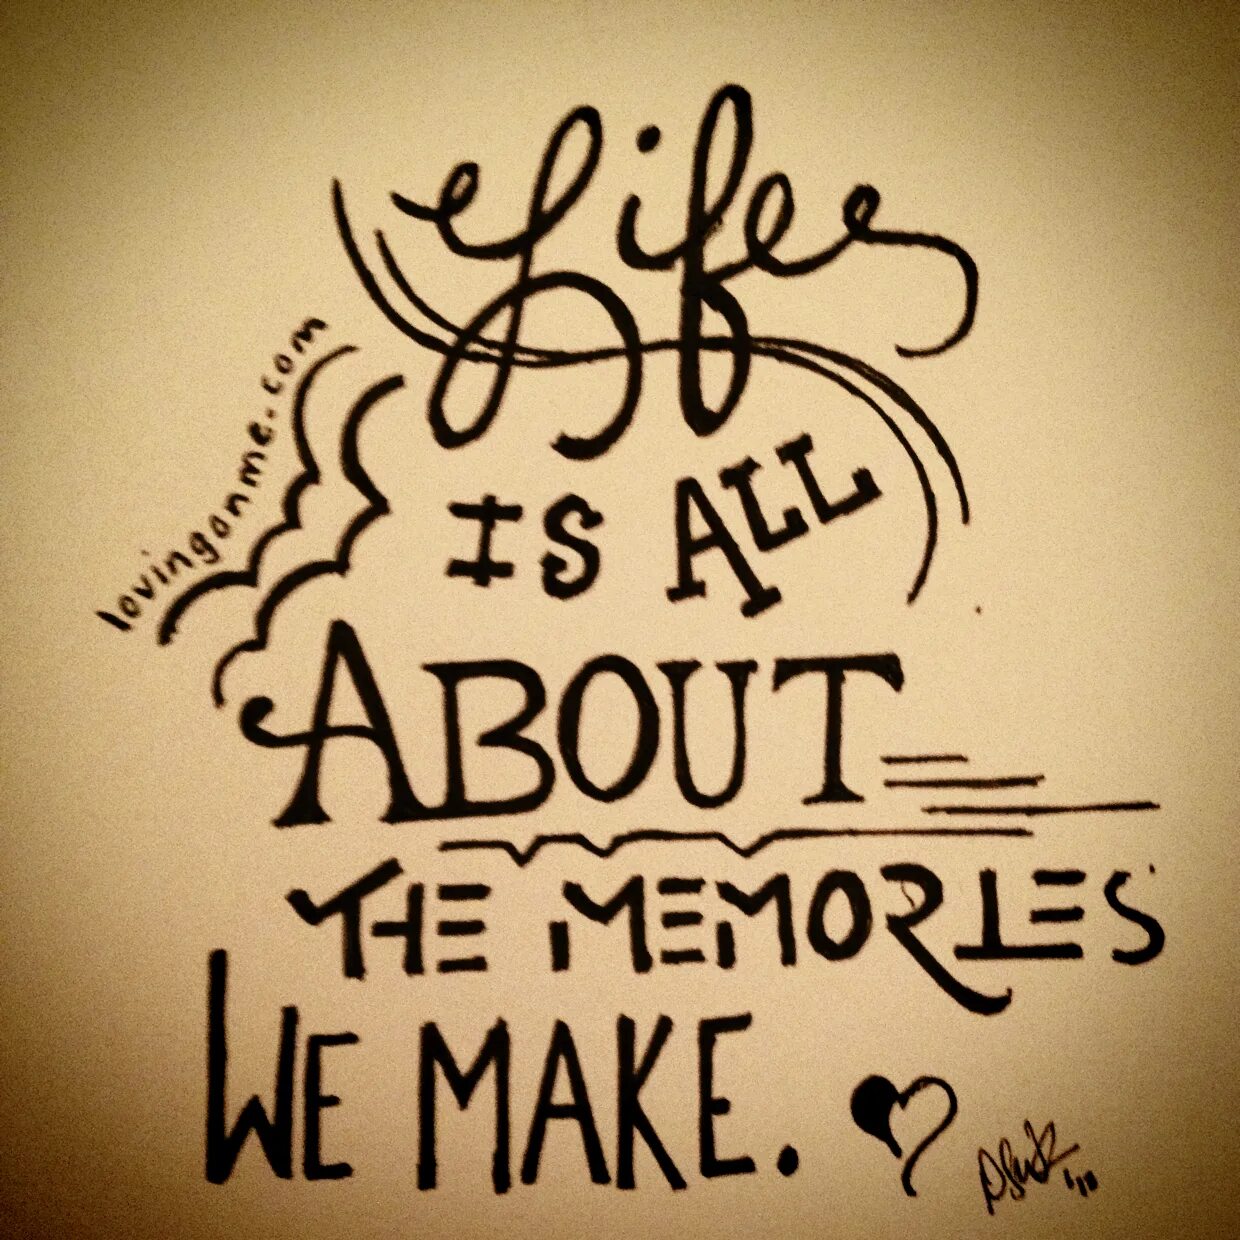 Life
IS ALL
ABOUT
THE MEMORIES
WE MAKE.
lovinganme.com